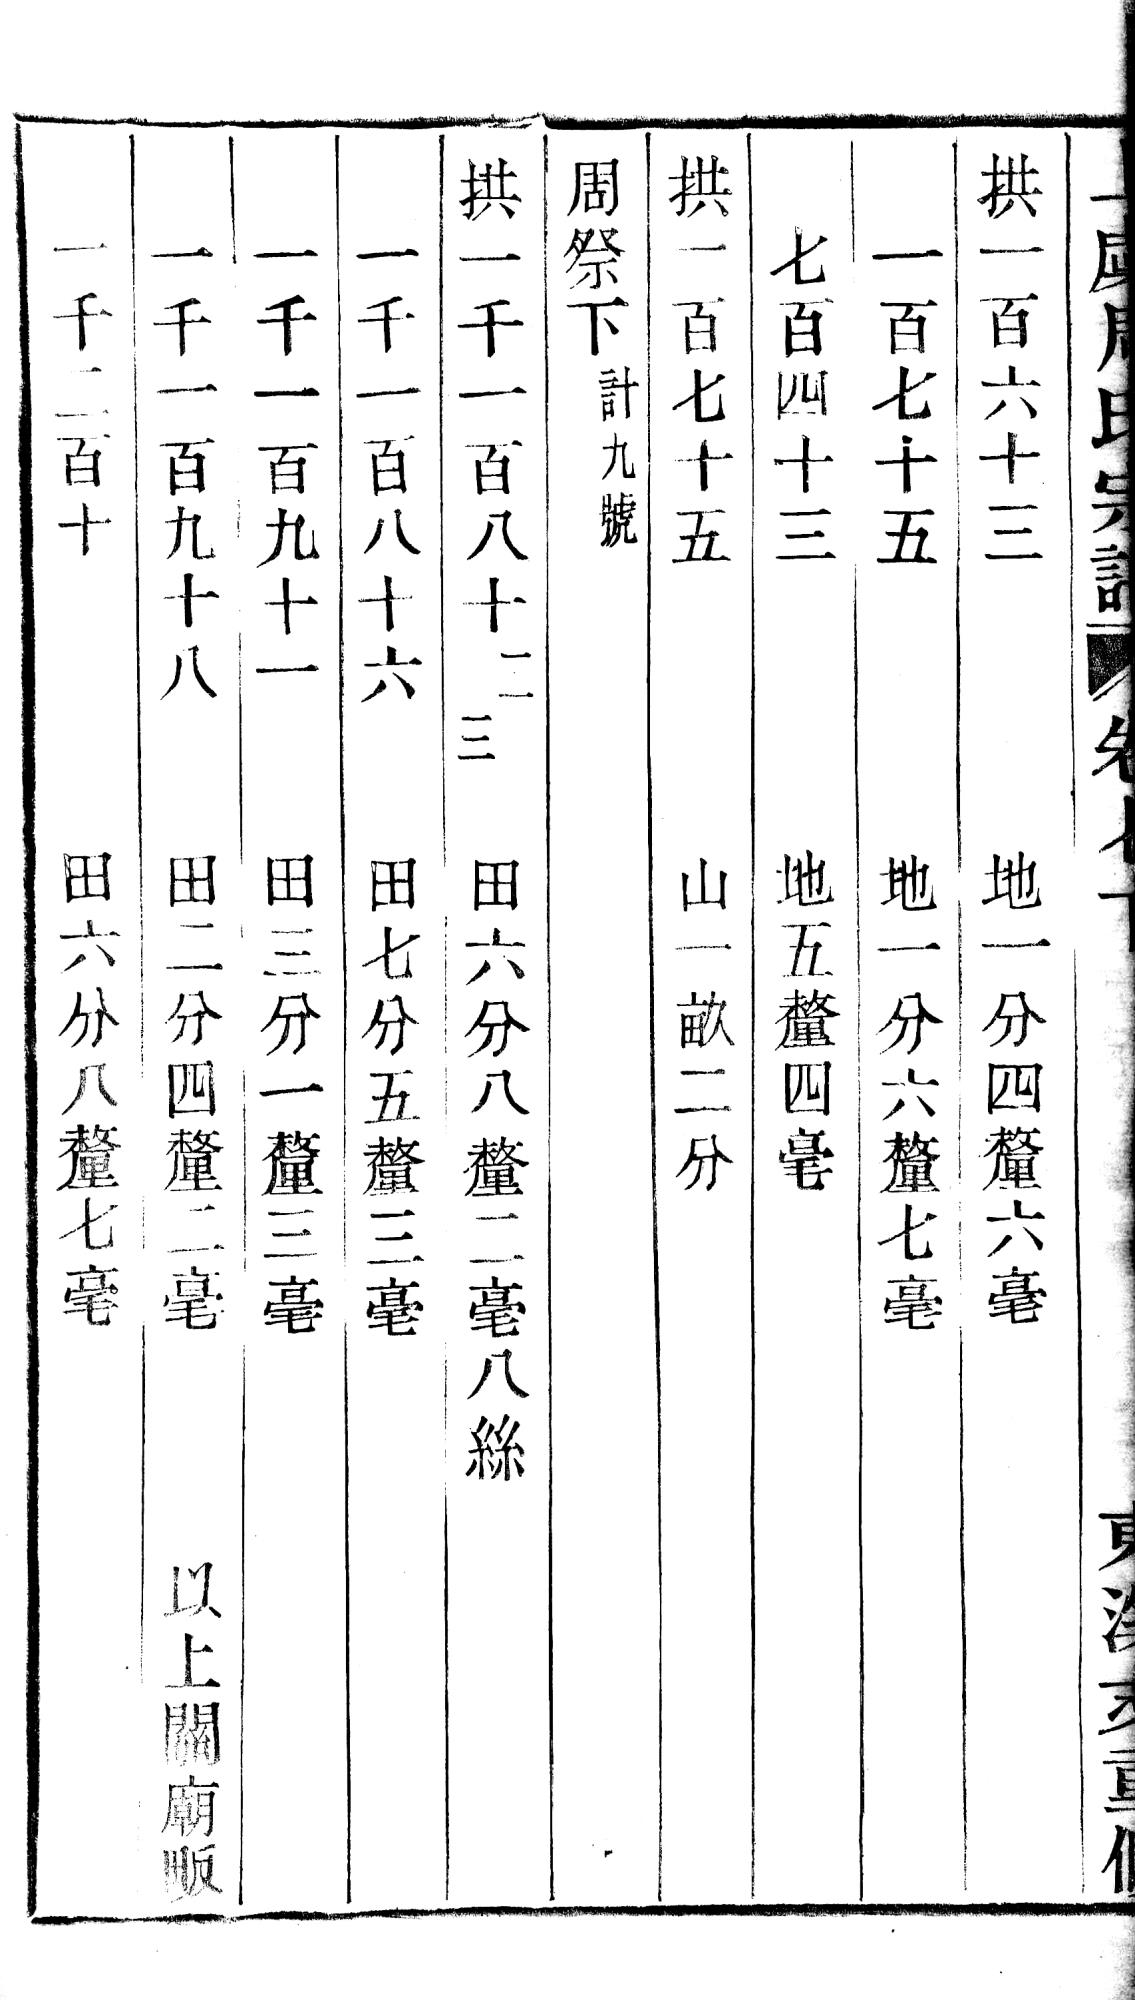 周氏宗譜 卷七
重修
拱一百六十三 地一分四釐六毫
一百七十五 地一分六釐七毫
七百四十三 地五釐四毫
拱一百七十五 山一畝二分
周祭下 計九號
拱一千一百八十二三 田六分八釐二毫八絲
一千一百八十六 田七分五釐三毫
一千一百九十一 田三分一釐三毫
一千一百九十八 田二分四釐二毫 以上關廟畈
一千二百十 田六分八釐七毫